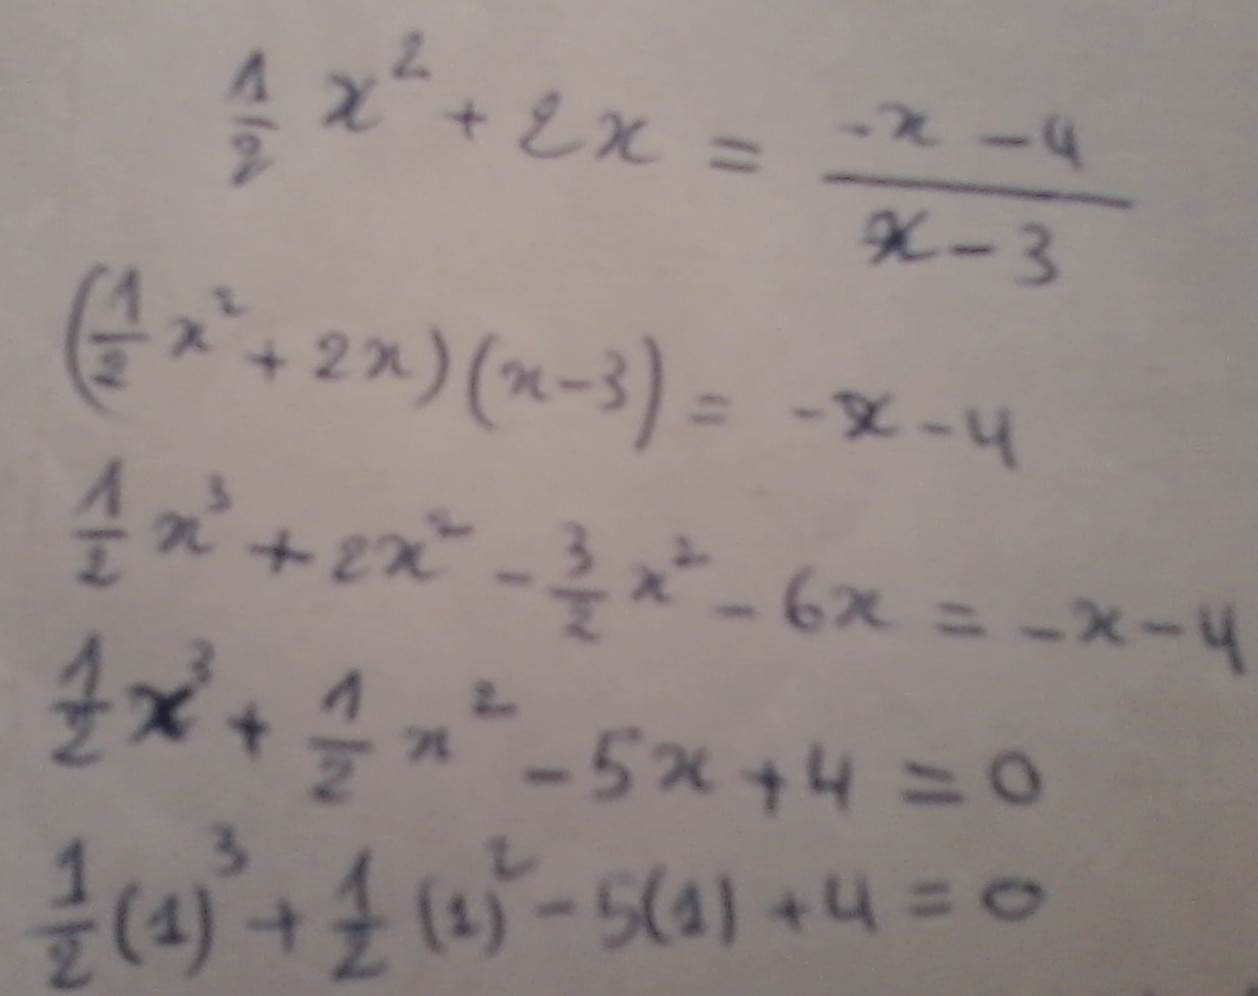 1/2 x² + 2x = (-x - 4)/(x - 3)
(1/2 x² + 2x)(x - 3) = -x - 4
1/2 x³ + 2x² - 3/2 x² - 6x = -x - 4
1/2 x³ + 1/2 x² - 5x + 4 = 0
1/2 (1)³ + 1/2 (1)² - 5(1) + 4 = 0